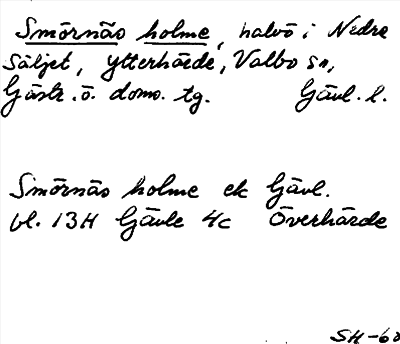 Smörnäs holme, halvö i Nedre
Säljet, Ytterhärde, Valbo sn,
Gästr. ö. doms. tg. Gävl. l.
Smörnäs holme ek Gävl.
bl. 13H Gävle 4c Överhärde
SH-68